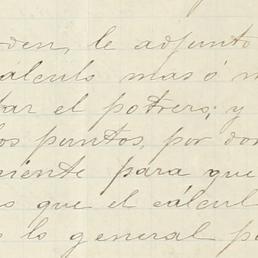 den, le adjunto
álculo mas ó m
tar el potrero; y
los puntos, por don
niente para que
s que el cálcul
s lo general p